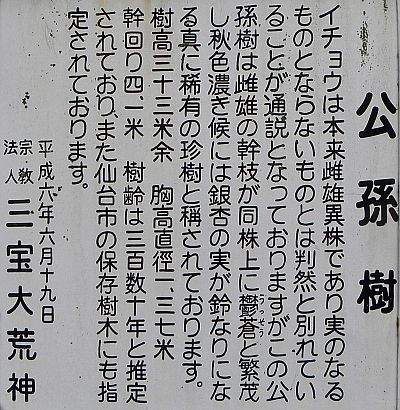 公孫樹
イチョウは本来雌雄異株であり実のなる
ものとならないものとは判然と別れてい
ることが通説となっておりますがこの公
孫樹は雌雄の幹枝が同株上に鬱蒼と繁茂
うっそう
し秋色濃き候には銀杏の実が鈴なりにな
る真に稀有の珍樹と称されております。
樹高三十三米余 胸高直徑一、三七米
幹回り四、一米 樹齢は三百数十年と推定
されており、また仙台市の保存樹木にも指
定されております。
平成六年六月十九日
宗教法人 三宝大荒神